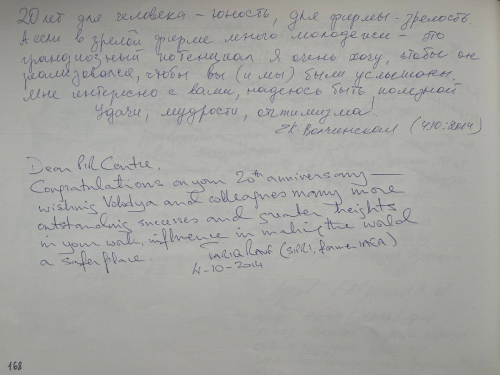 20 лет для человека – юность, для фирмы – зрелость.
А если в зрелой фирме много молодёжи – это
грандиозный потенциал. Я очень хочу, чтобы он
реализовался, чтобы вы (и мы) были услышаны.
Мне интересно с вами, надеюсь быть полезной
Удачи, мудрости, оптимизма!
Волчинская (4.10.2014)
Dear PIR Centre,
Congratulations on your 20th anniversary —
wishing Volodya and colleagues many more
outstanding successes and greater heights
in your work, influence in making the world
a safer place.
TARIQ RAUF (SIPRI, former IAEA)
4-10-2014
168